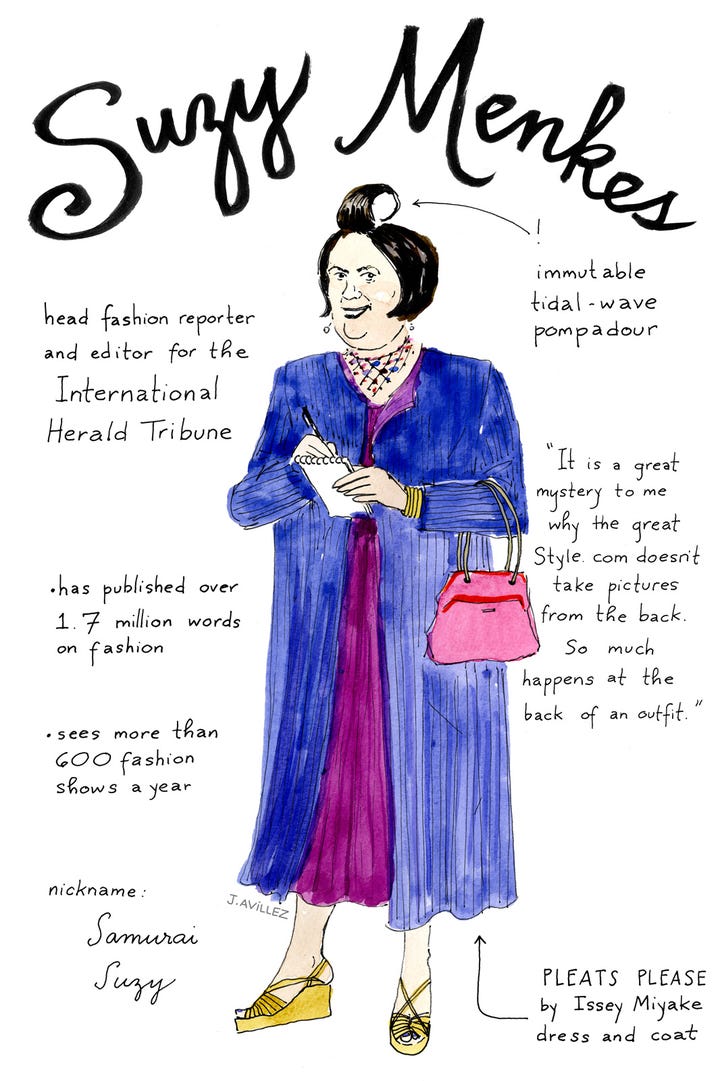 Suzy Menkes
!
immutable
tidal-wave
pompadour
head fashion reporter
and editor for the
International
Herald Tribune
"It is a great
mystery to me
why the great
Style.com doesn't
take pictures
from the back.
So much
happens at the
back of an outfit."
•has published over
1.7 million words
on fashion
•sees more than
600 fashion
shows a year
nickname:
Samurai
Suzy
J.AVILLEZ
PLEATS PLEASE
by Issey Miyake
dress and coat